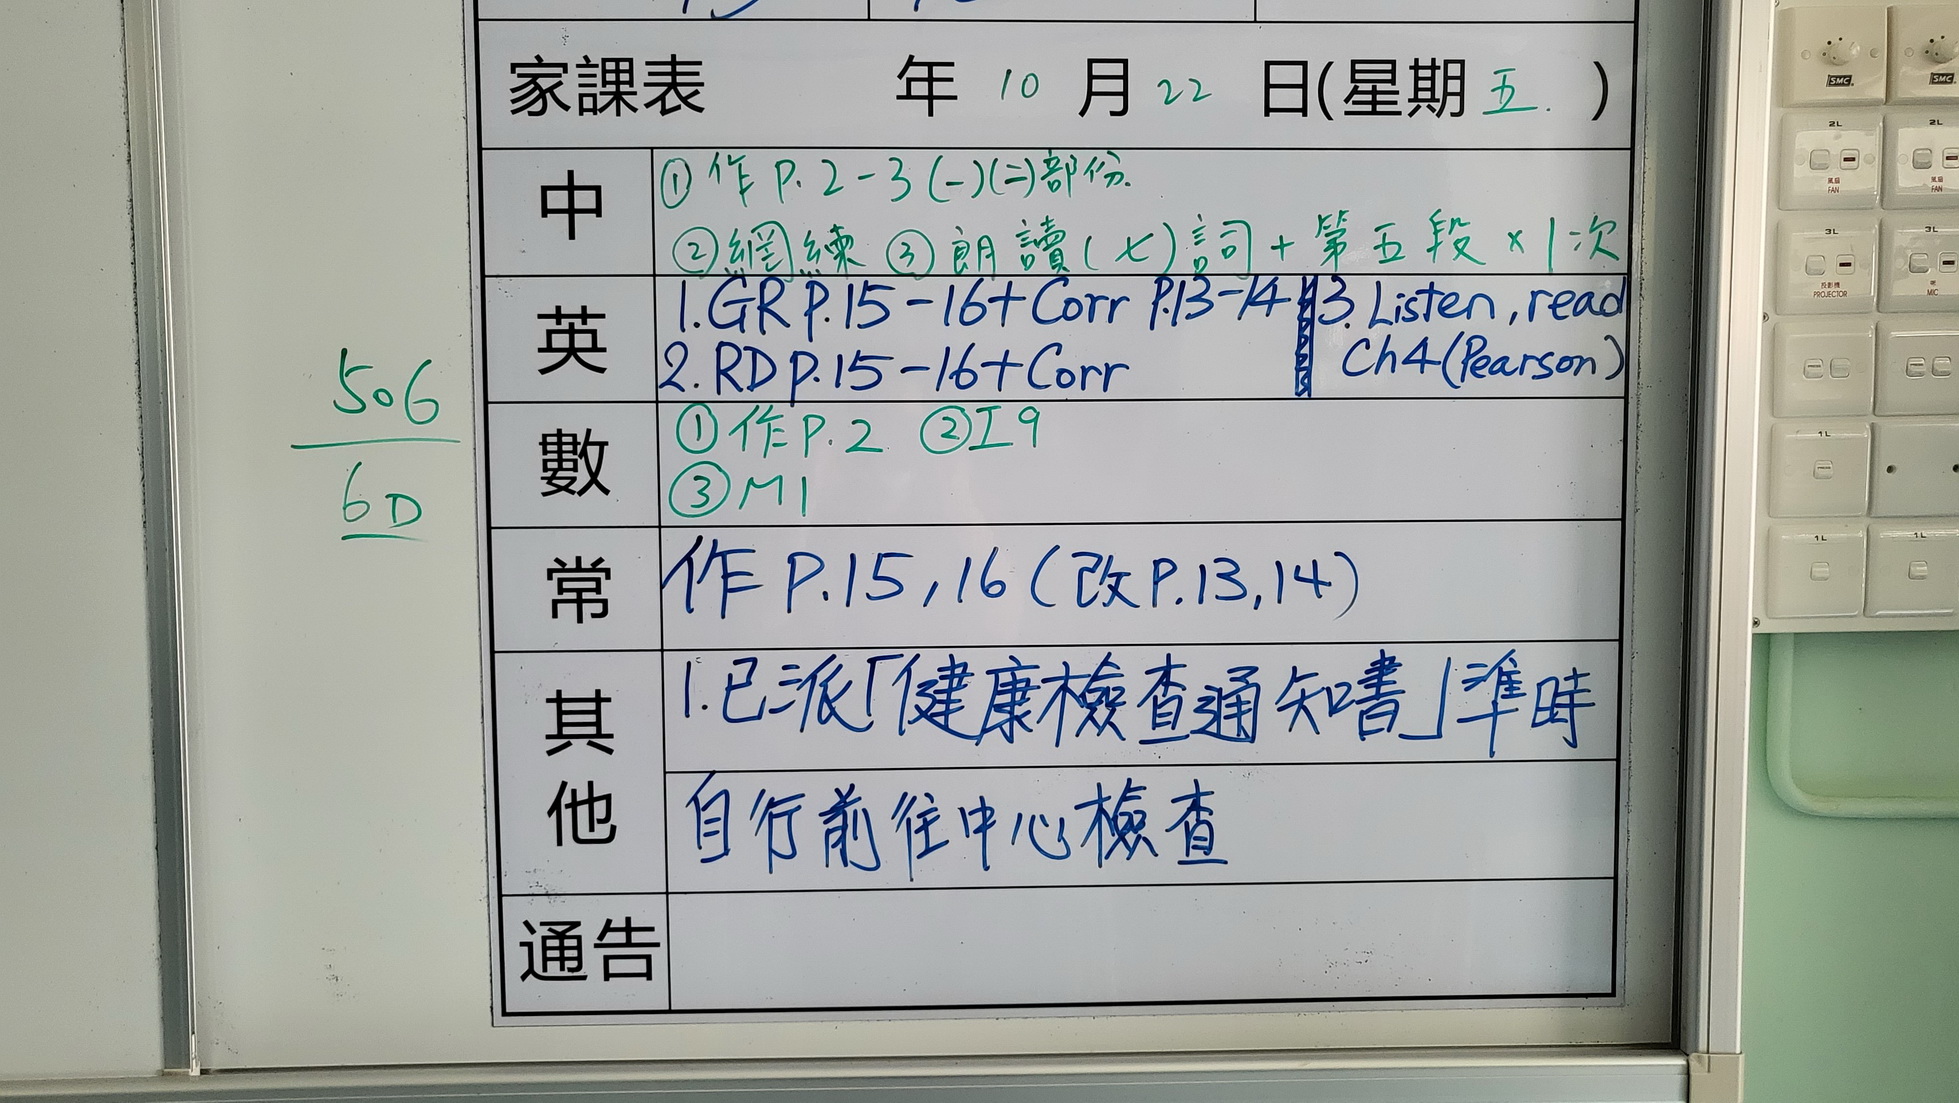 家課表 年 10 月 22 日(星期 五. )
中 ① 作 P. 2-3 (一)(二)部份.
② 網練 ③ 朗讀(七)詞+第五段×1次
英 1. GR P.15-16+Corr P.13-14 3. Listen, read
2. RD P.15-16+Corr Ch4 (Pearson)
數 ① 作 P.2 ② I9
③ M1
常 作 P.15, 16 (改 P.13, 14)
其他 1. 已派「健康檢查通知書」準時
自行前往中心檢查
通告
506
6D
SMC
SMC
2L
2L
風扇
FAN
風扇
FAN
3L
3L
投影機
PROJECTOR
MIC
1L
1L
1L